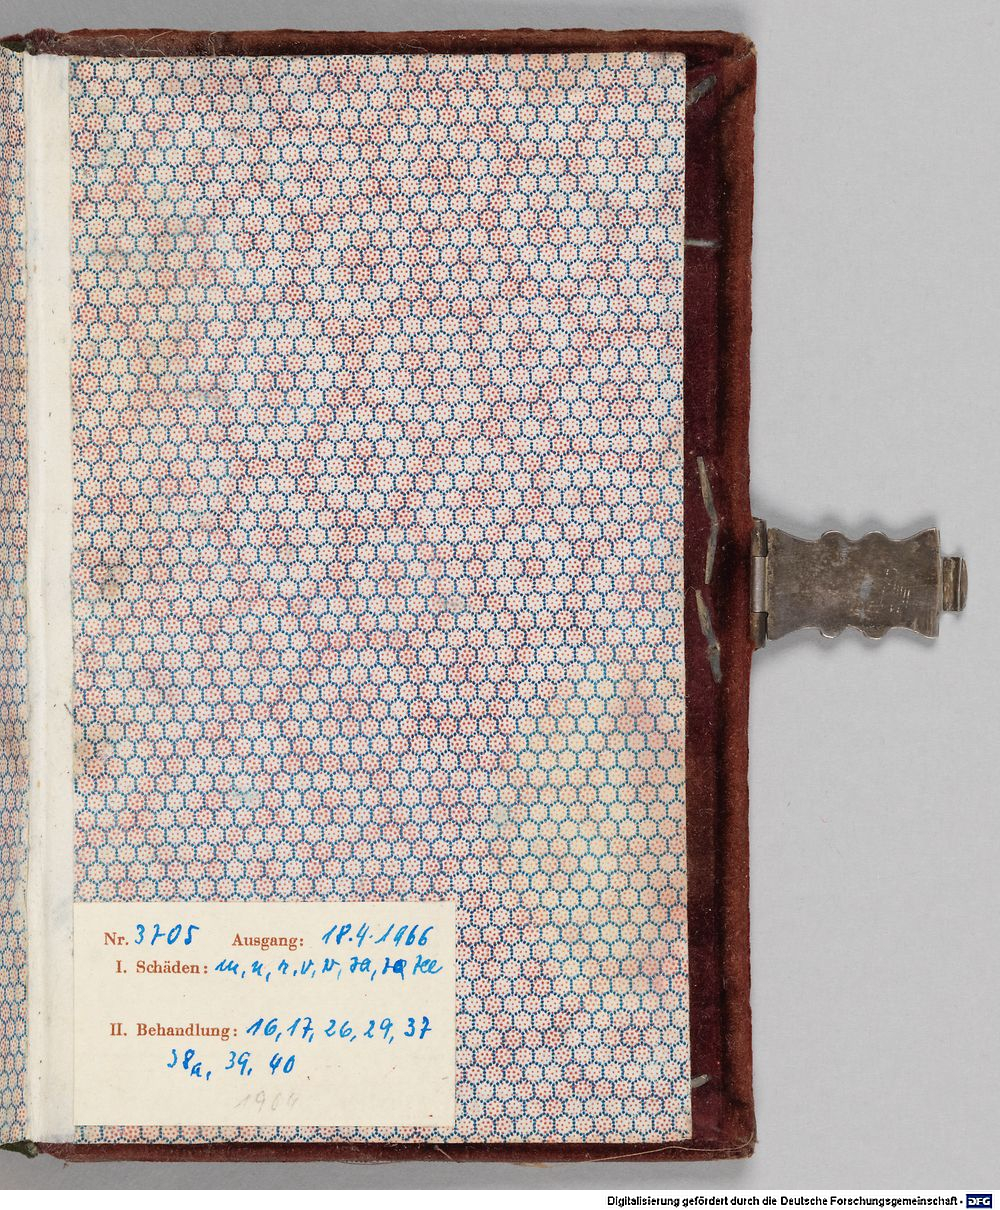 Nr. 3705 Ausgang: 18.4.1966
I. Schäden: m, n, r, v, w,
II. Behandlung: 16, 17, 26, 29, 37
38a, 39, 40
Digitalisierung gefördert durch die Deutsche Forschungsgemeinschaft - DFG